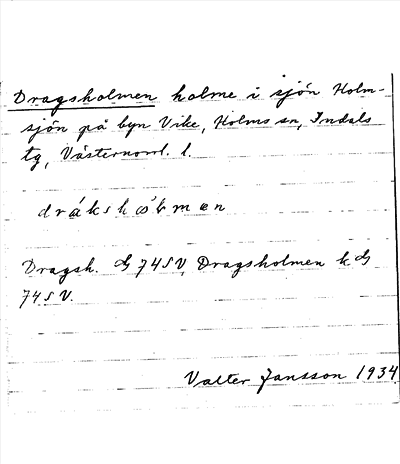 Dragsholmen holme i sjön Holm-
sjön på byn Vike, Holms sn, Indals
tg, Västernorrl. l.
Dragsh. 74SV, Dragsholmen k
74SV.
Valter Jansson 1934